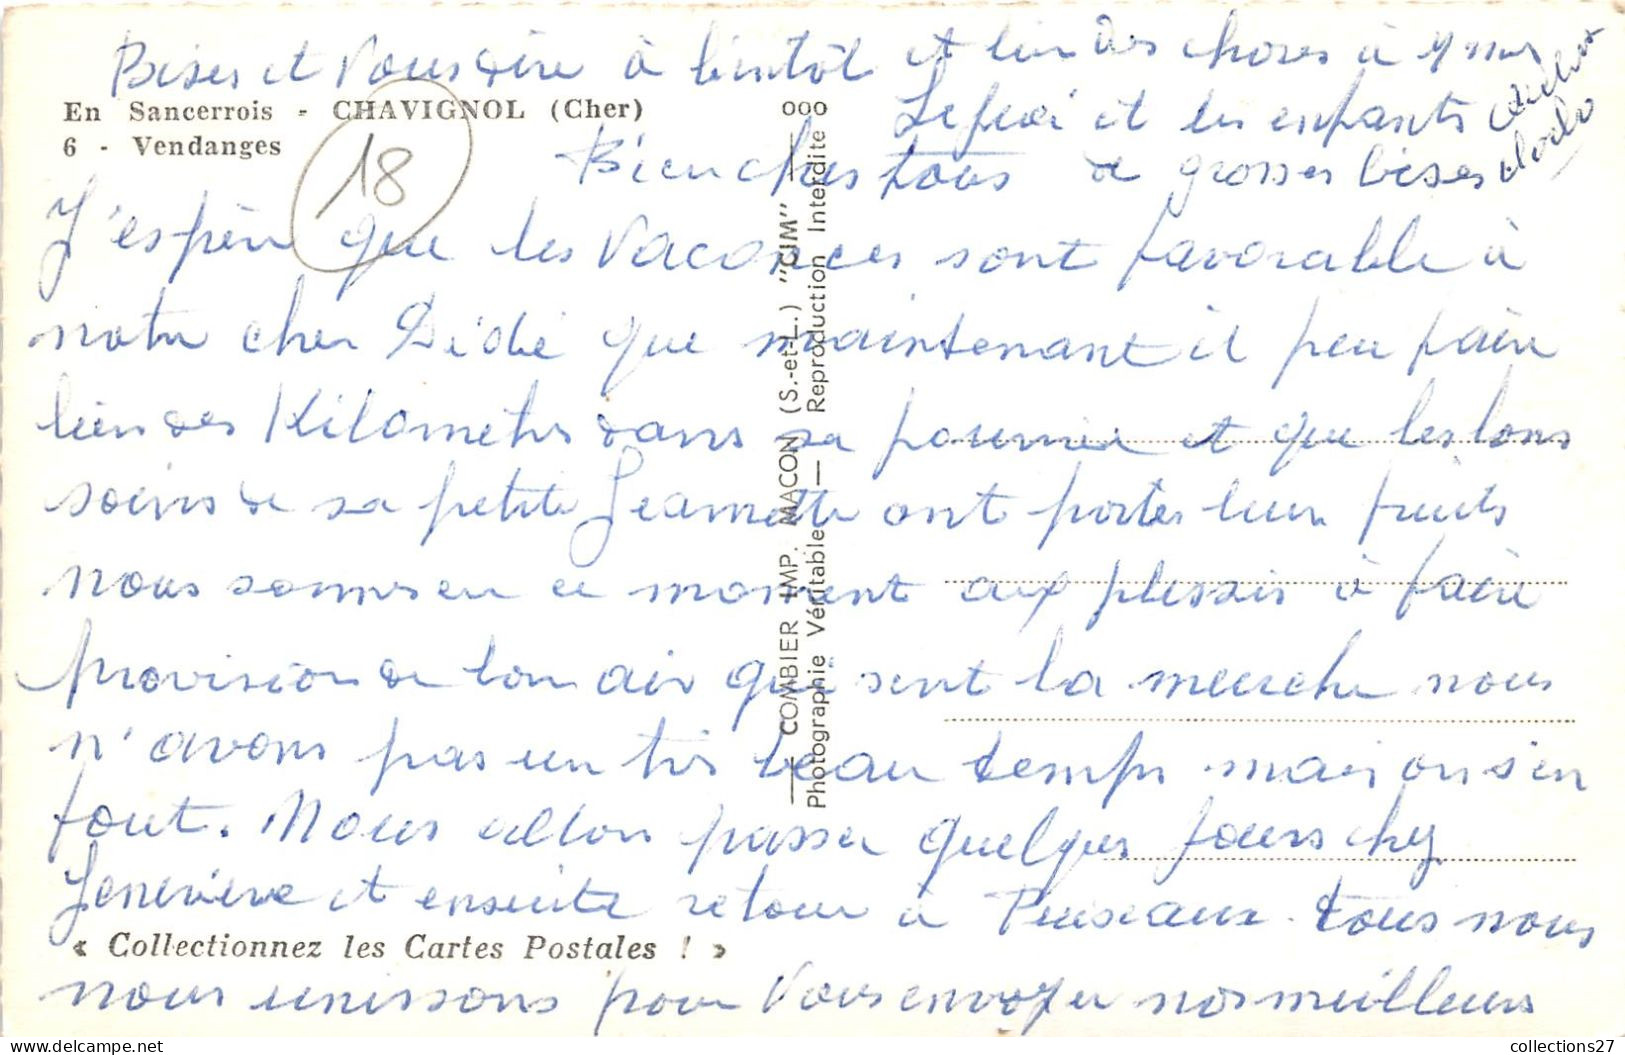 Bises et Vous dire à bientôt et bien des choses à Mme
En Sancerrois - CHAVIGNOL (Cher)
6 - Vendanges
18
et les enfants
Bien chers tous de grosses bises
J'espère que les Vacances sont favorable à
notre cher Dédé que maintenant il peu faire
bien des Kilomètres dans sa journée et que les bons
soins de sa petite Jeannette ont portés leur fruits
nous sommes en ce moment aux plessis à faire
provision de bon air qui sent la meuche nous
n'avons pas un très beau temps mais on s'en
fout. Nous allons passer quelques jours chez
Geneviève et ensuite retour à Puiseaux. tous nous
« Collectionnez les Cartes Postales ! »
nous unissons pour Vous envoyer nos meilleurs
— COMBIER IMP. MACON (S.-et-L.) "CIM" — ooo
Photographie Véritable — Reproduction Interdite
collections27